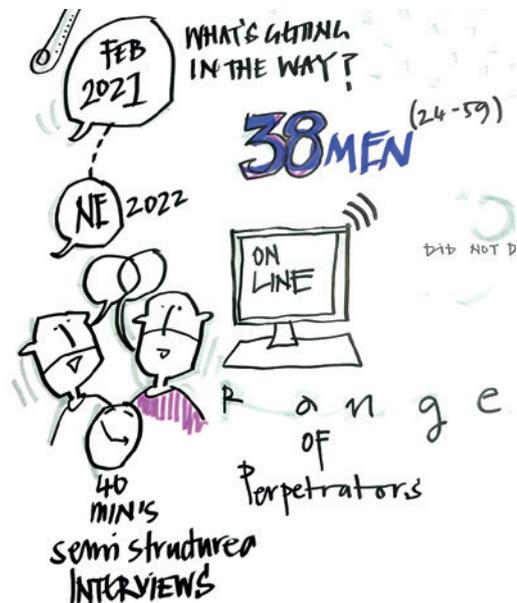 FEB
2021
WHAT'S GETTING
IN THE WAY?
38 MEN (24-59)
NE 2022
ON
LINE
DID NOT D
Range
OF
Perpetrators
40
MIN'S
semi structured
INTERVIEWS